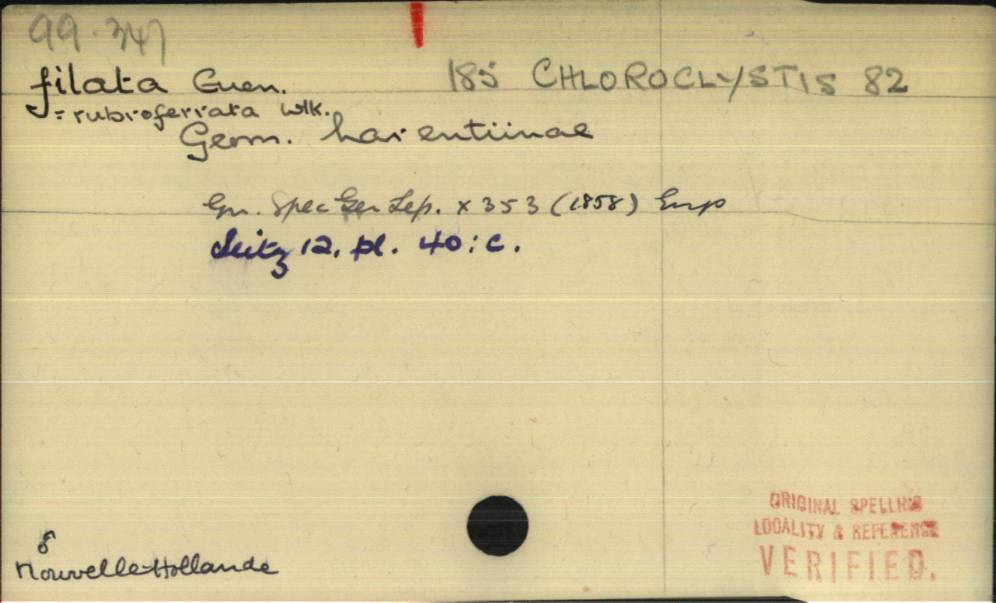 99.347
filata Guen. 185 CHLOROCLYSTIS 82
= rubroferrata Wlk.
Geom. harentiinae
Gn. Spec Gen Lep. x 353 (1858) Eup
Seitz 12. pl. 40: c.
♂
Nouvelle-Hollande
ORIGINAL SPELLING
LOCALITY & REFERENCE
VERIFIED.